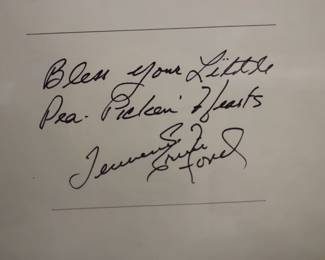 Bless your Little
Pea-Pickin' Hearts
Tennessee Ernie
Ford